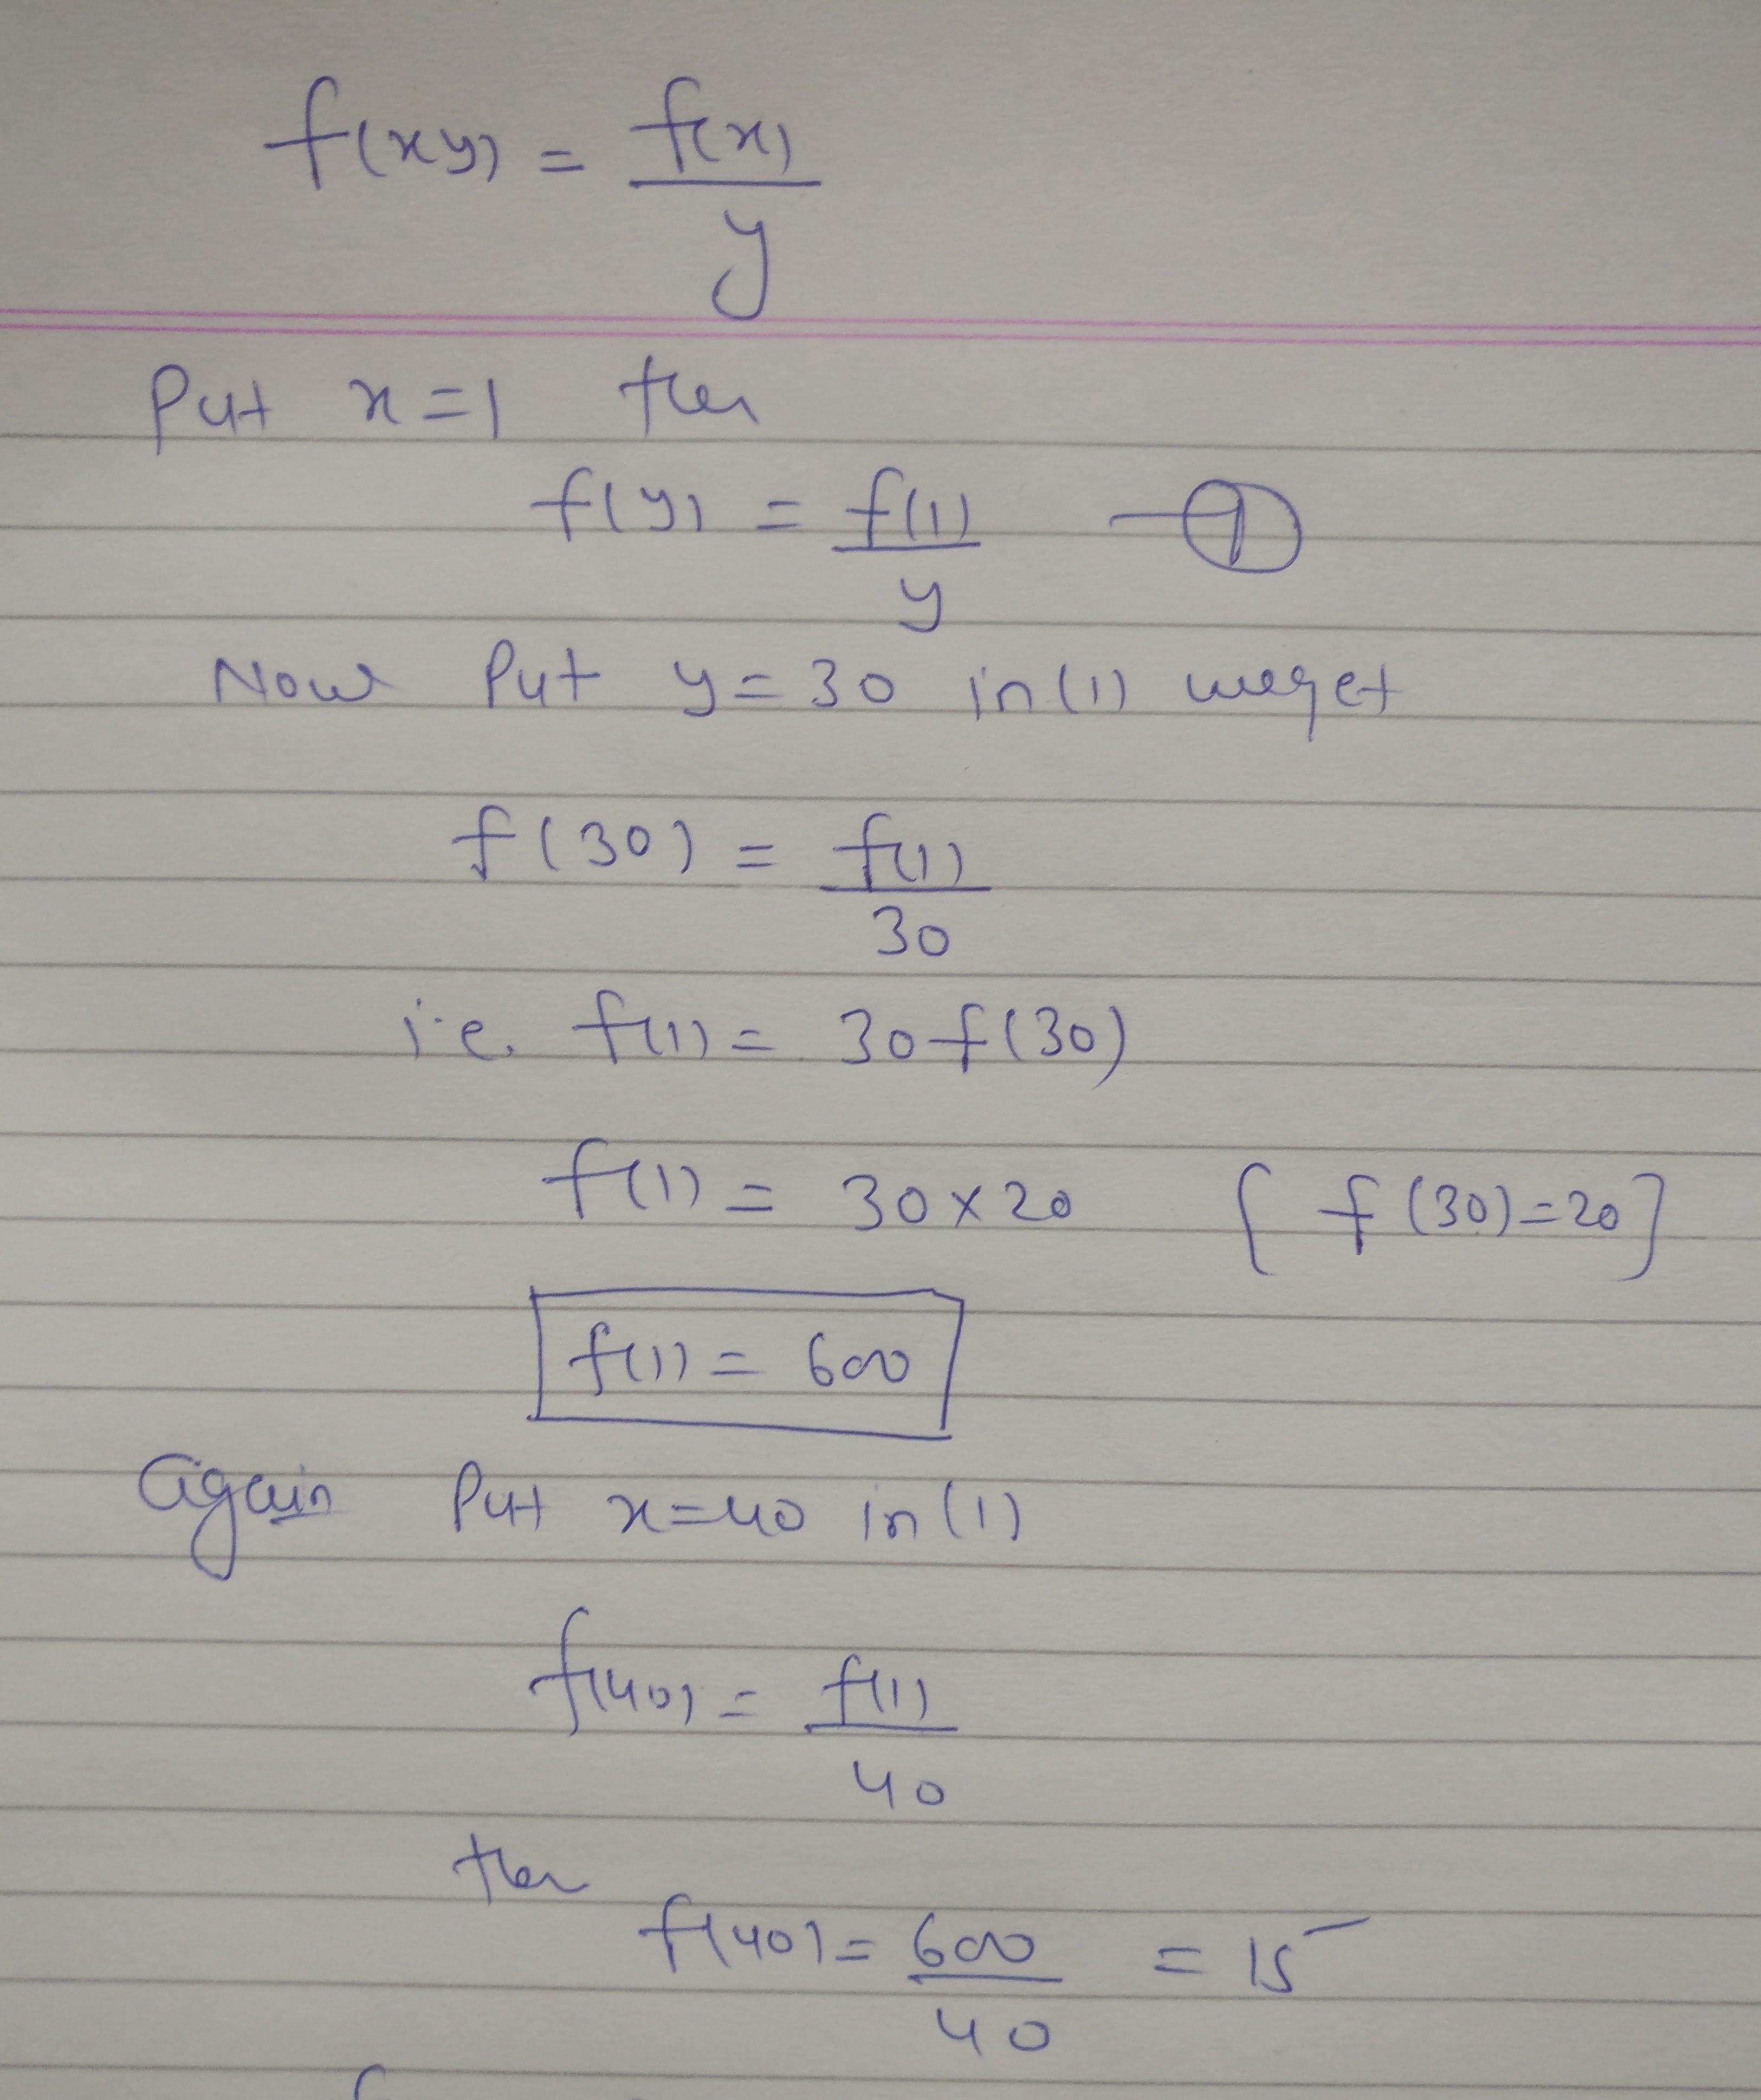 f(xy) = f(x)
y
Put x=1 then
f(y) = f(1) — ①
y
Now Put y=30 in (1) we get
f(30) = f(1)
30
i.e. f(1) = 30 f(30)
f(1) = 30 x 20 [ f(30)=20 ]
f(1) = 600
again Put x=40 in (1)
f(40) = f(1)
40
then
f(40) = 600 = 15
40